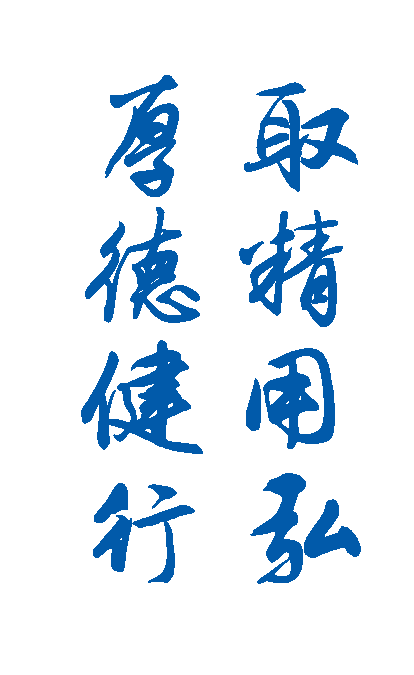 取精用弘
厚德健行